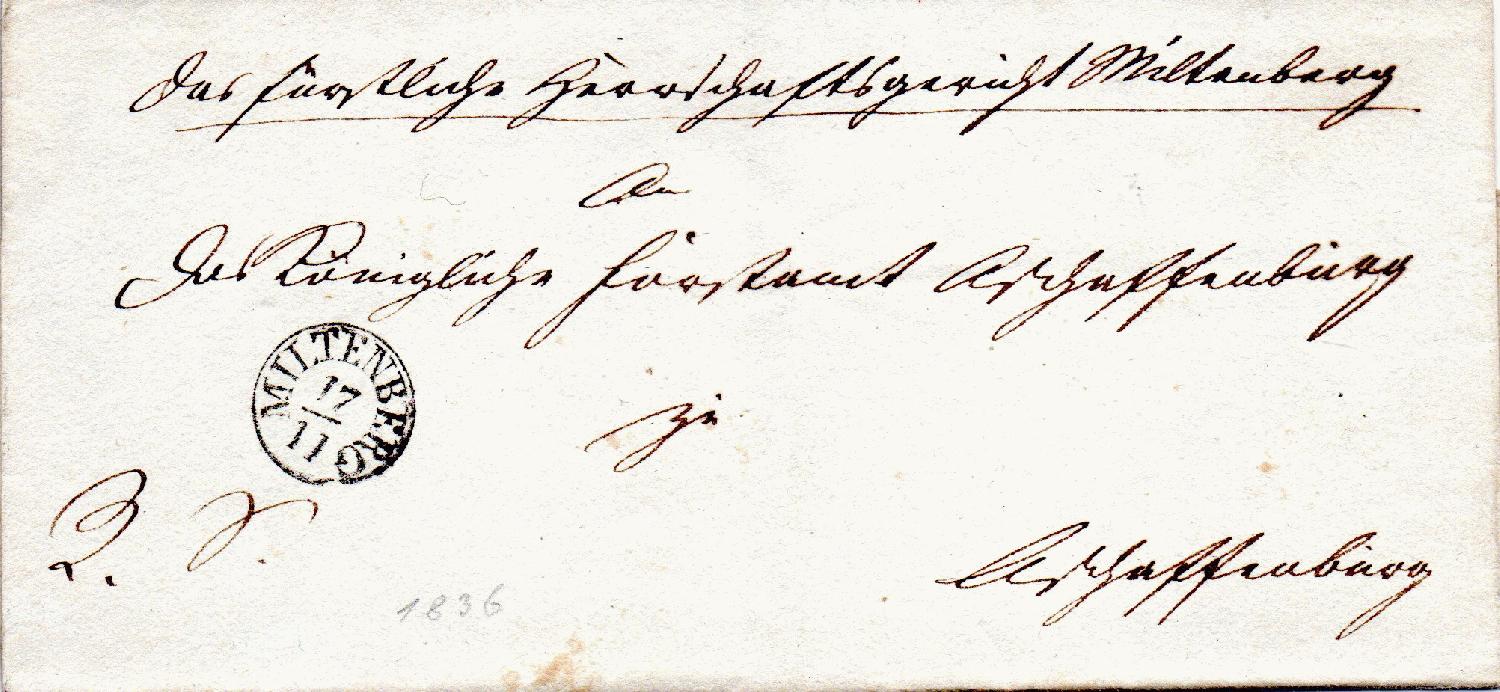 Das fürstliche Herrschaftsgericht Miltenberg
An
Das Königliche Forstamt Aschaffenburg
MILTENBERG
17
11
zu
R. S.
Aschaffenburg
1836